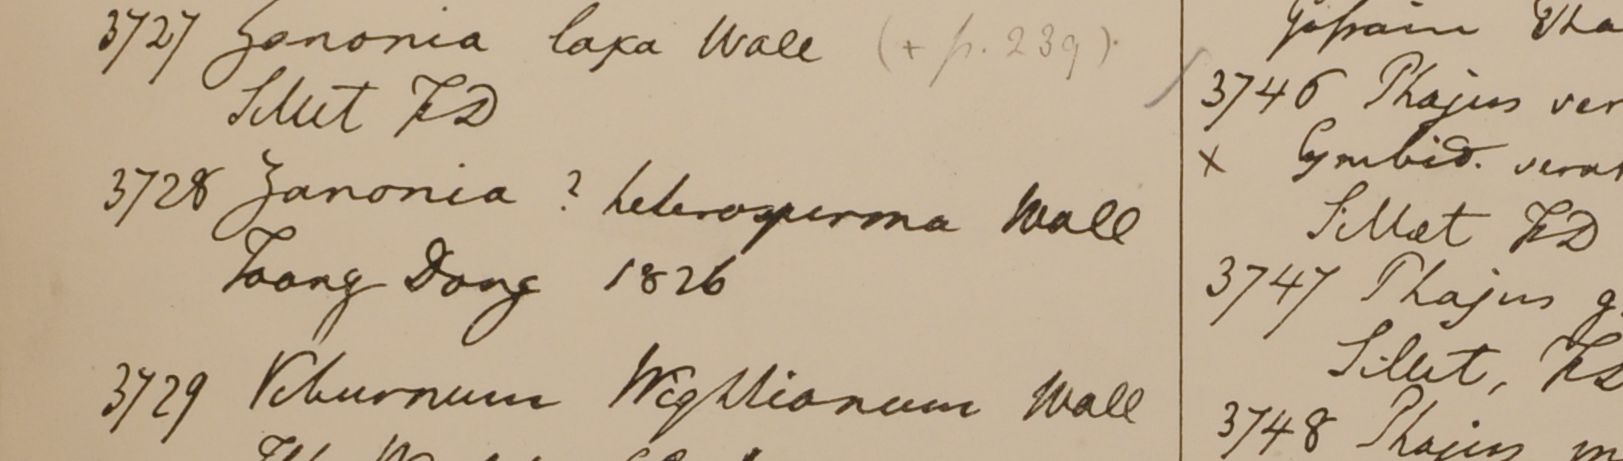 3727 Zanonia laxa Wall (+ p. 239).
Sillet FD
3728 Zanonia ? heterosperma Wall
Toong Dong 1826
3729 Viburnum Wightianum Wall
3746 Phajus ver
x Cymbid. verat
Sillet FD
3747 Phajus g
Sillet, FD
3748 Phajus m